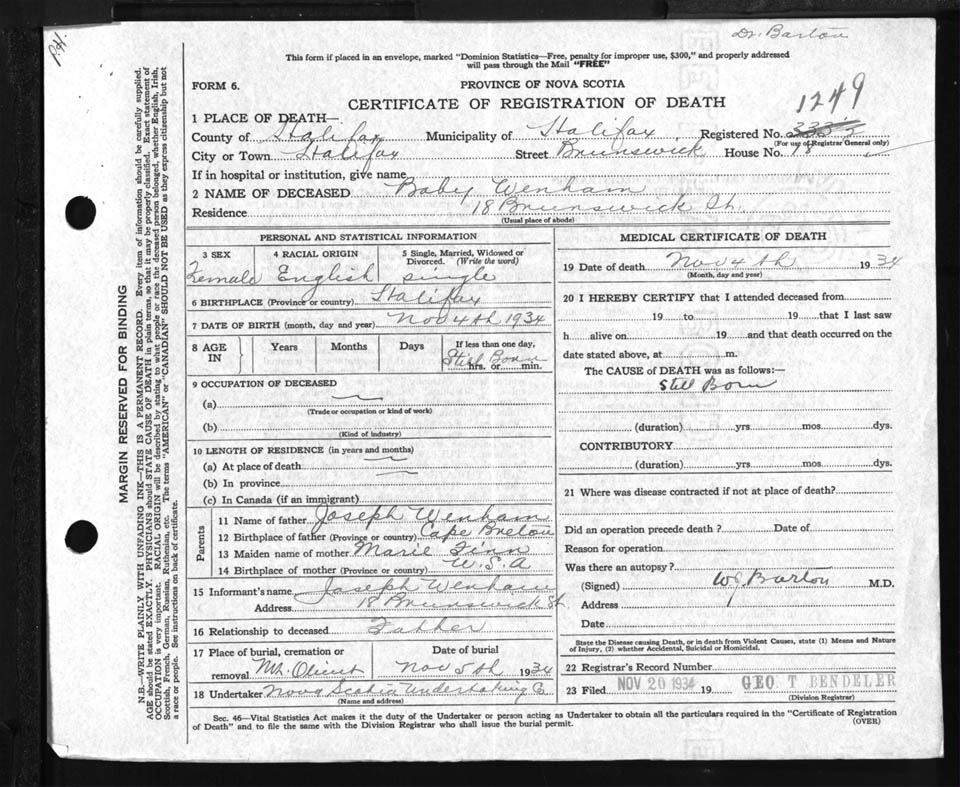 Dr. Barton
This form if placed in an envelope, marked "Dominion Statistics—Free, penalty for improper use, $300," and properly addressed
will pass through the Mail "FREE"
FORM 6.
PROVINCE OF NOVA SCOTIA
CERTIFICATE OF REGISTRATION OF DEATH
1249
1 PLACE OF DEATH—
County of Halifax Municipality of Halifax Registered No.
(For use of Registrar General only)
City or Town Halifax Street Brunswick House No. 18
If in hospital or institution, give name
2 NAME OF DECEASED Baby Wenham
Residence 18 Brunswick St.
(Usual place of abode)
PERSONAL AND STATISTICAL INFORMATION
3 SEX 4 RACIAL ORIGIN 5 Single, Married, Widowed or Divorced. (Write the word)
Female English single
6 BIRTHPLACE (Province or country) Halifax
7 DATE OF BIRTH (month, day and year) Nov 4th 1934
8 AGE IN Years Months Days If less than one day,
Still Born
hrs. or min.
9 OCCUPATION OF DECEASED
(a)
(Trade or occupation or kind of work)
(b)
(Kind of industry)
10 LENGTH OF RESIDENCE (in years and months)
(a) At place of death
(b) In province
(c) In Canada (if an immigrant)
Parents
11 Name of father Joseph Wenham
12 Birthplace of father (Province or country) Cape Breton
13 Maiden name of mother Marie Finn
14 Birthplace of mother (Province or country) U.S.A
15 Informant's name Joseph Wenham
Address 18 Brunswick St.
16 Relationship to deceased Father
17 Place of burial, cremation or removal Mt. Olivet
Date of burial Nov 5th 1934
18 Undertaker Nova Scotia Undertaking Co
(Name and address)
MEDICAL CERTIFICATE OF DEATH
19 Date of death Nov 4th 1934
(Month, day and year)
20 I HEREBY CERTIFY that I attended deceased from
19 to 19 that I last saw
h alive on 19 and that death occurred on the
date stated above, at m.
The CAUSE of DEATH was as follows:—
Still Born
(duration) yrs mos dys.
CONTRIBUTORY
(duration) yrs mos dys.
21 Where was disease contracted if not at place of death?
Did an operation precede death? Date of
Reason for operation
Was there an autopsy?
(Signed) Barton M.D.
Address
Date
State the Disease causing Death, or in death from Violent Causes, state (1) Means and Nature
of Injury, (2) whether Accidental, Suicidal or Homicidal.
22 Registrar's Record Number
23 Filed NOV 20 1934 19 GEO T BENDELER
(Division Registrar)
Sec. 46—Vital Statistics Act makes it the duty of the Undertaker or person acting as Undertaker to obtain all the particulars required in the "Certificate of Registration
of Death" and to file the same with the Division Registrar who shall issue the burial permit. (OVER)
MARGIN RESERVED FOR BINDING
N.B.—WRITE PLAINLY WITH UNFADING INK—THIS IS A PERMANENT RECORD. Every item of information should be carefully supplied.
AGE should be stated EXACTLY. PHYSICIANS should STATE CAUSE OF DEATH in plain terms, so that it may be properly classified. Exact statement of
OCCUPATION is very important. RACIAL ORIGIN will be described by stating to what people or race the deceased person belonged, whether English, Irish,
Scottish, French, German, Russian, Ruthenian, etc. The terms "AMERICAN" or "CANADIAN" SHOULD NOT BE USED as they express citizenship but not
a race or people. See instructions on back of certificate.